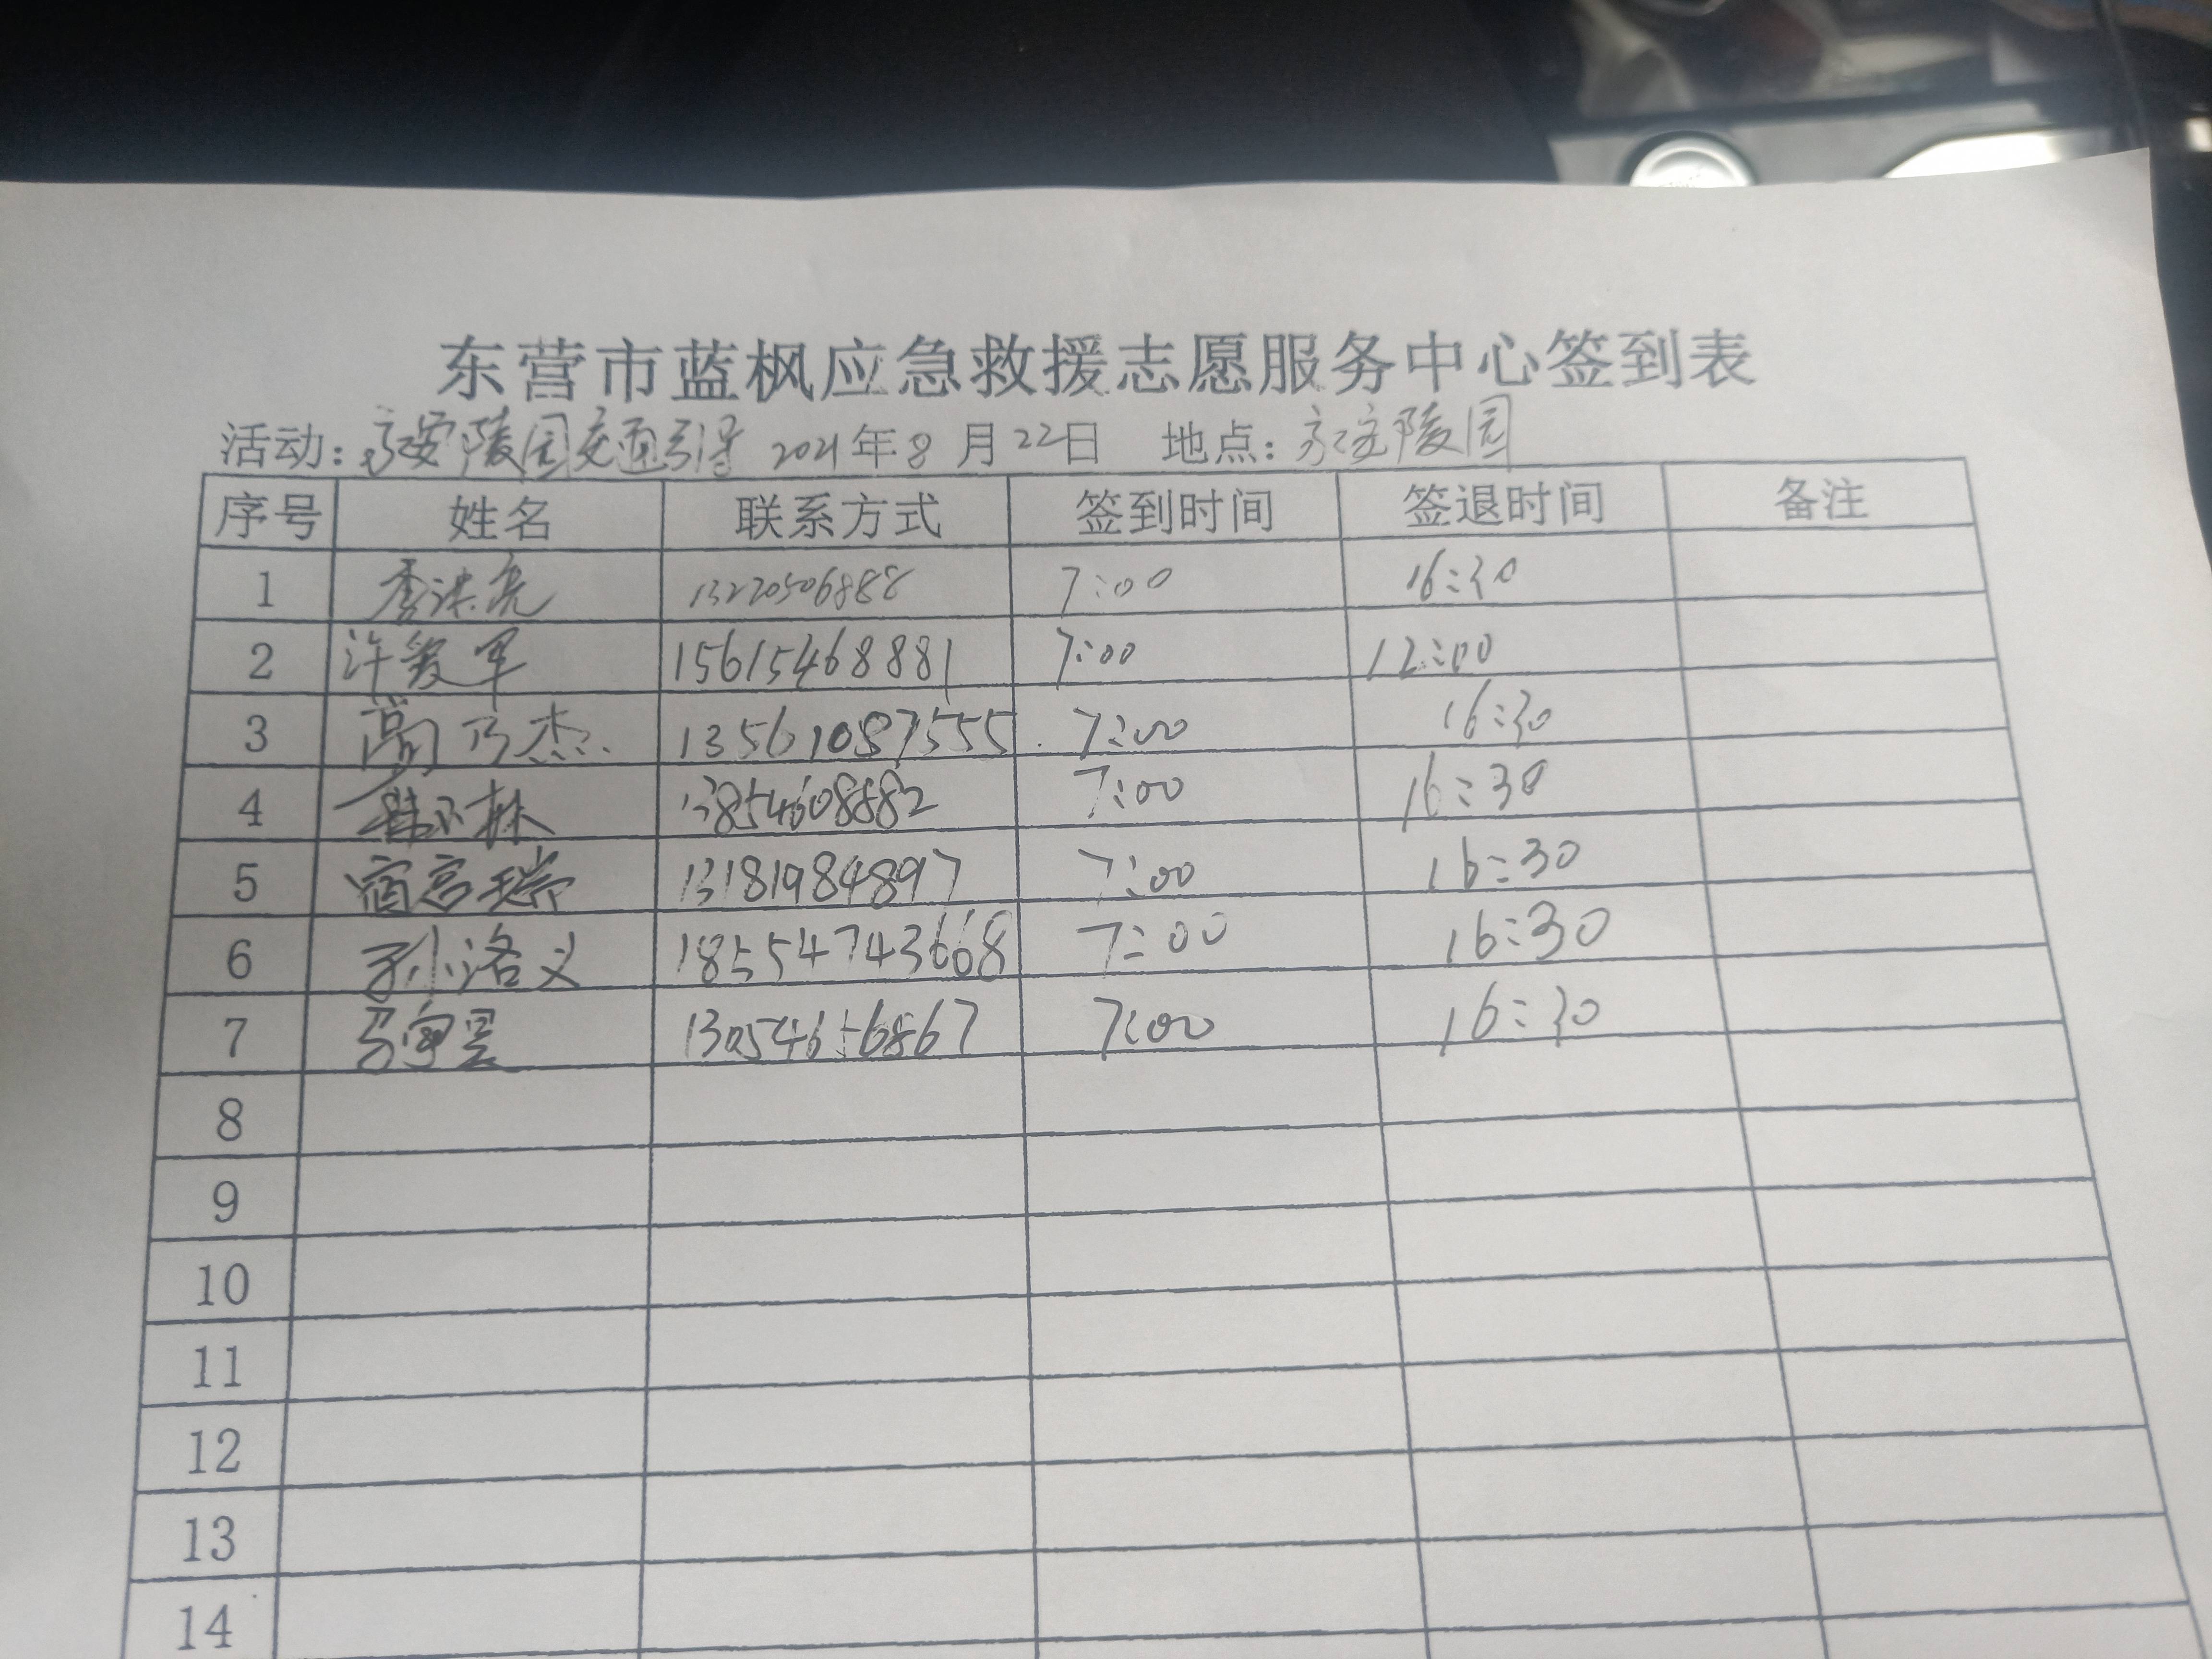 东营市蓝枫应急救援志愿服务中心签到表
活动：永安陵园交通引导 2021年8月22日 地点：永安陵园
序号 姓名 联系方式 签到时间 签退时间 备注
1 李洪亮 13220506888 7:00 16:30
2 许爱军 15615468881 7:00 12:00
3 高乃杰 13561087555 7:00 16:30
4 13854608882 7:00 16:30
5 宿宫瑞 13181984897 7:00 16:30
6 孙洛义 18554743668 7:00 16:30
7 13054656867 7:00 16:30
8
9
10
11
12
13
14